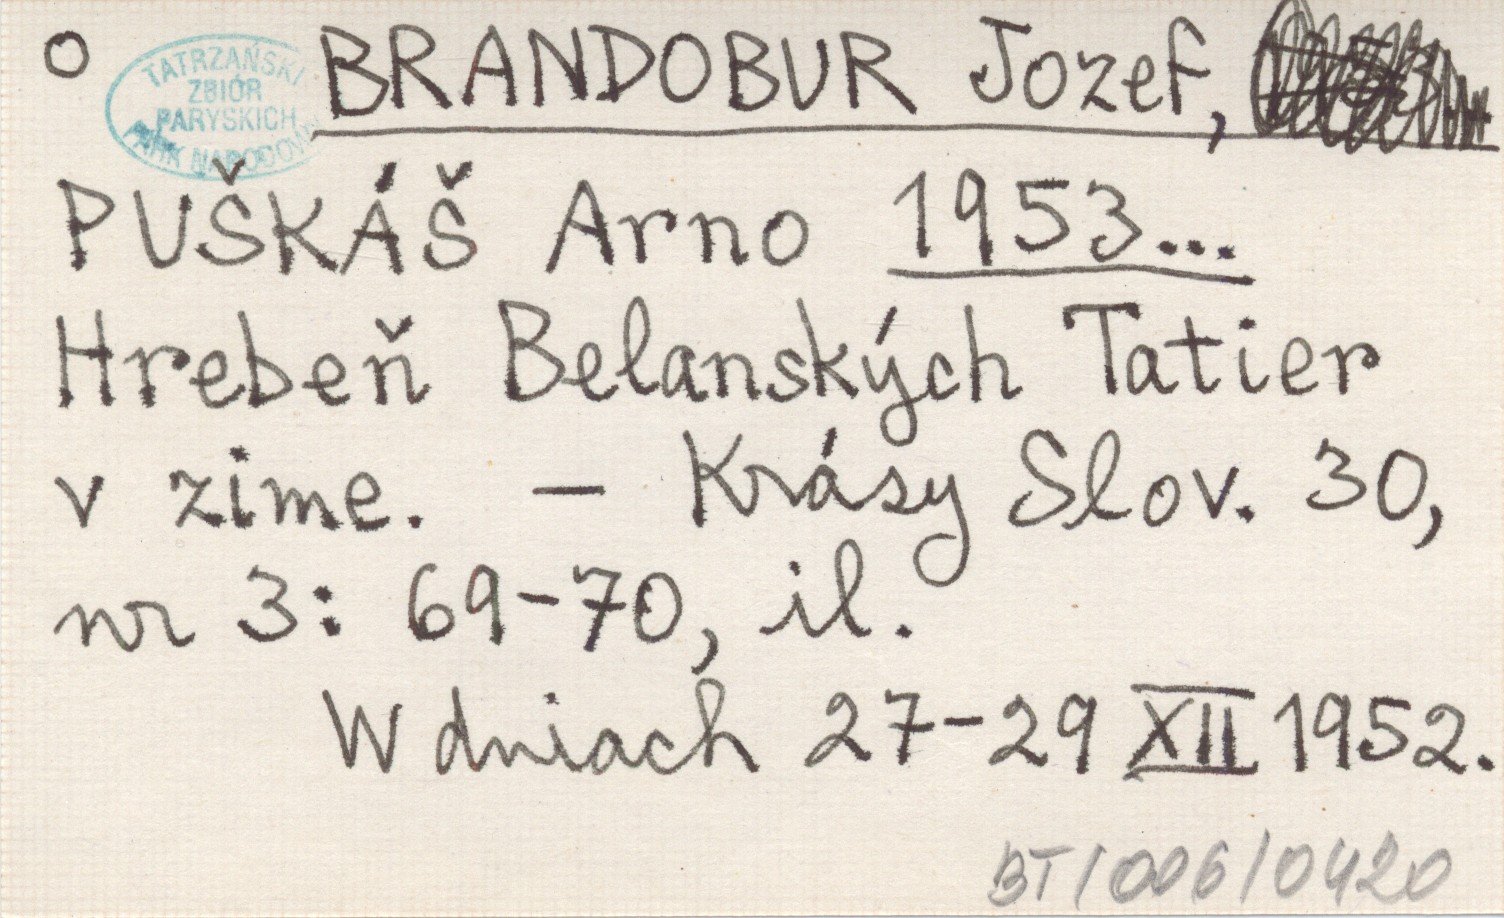 o
TATRZAŃSKI
ZBIÓR
PARYSKICH
PARK NARODOWY
BRANDOBUR Jozef,
PUŠKÁŠ Arno 1953...
Hrebeň Belanských Tatier
v zime. – Krásy Slov. 30,
nr 3: 69-70, il.
W dniach 27-29 XII 1952.
BT/006/0420